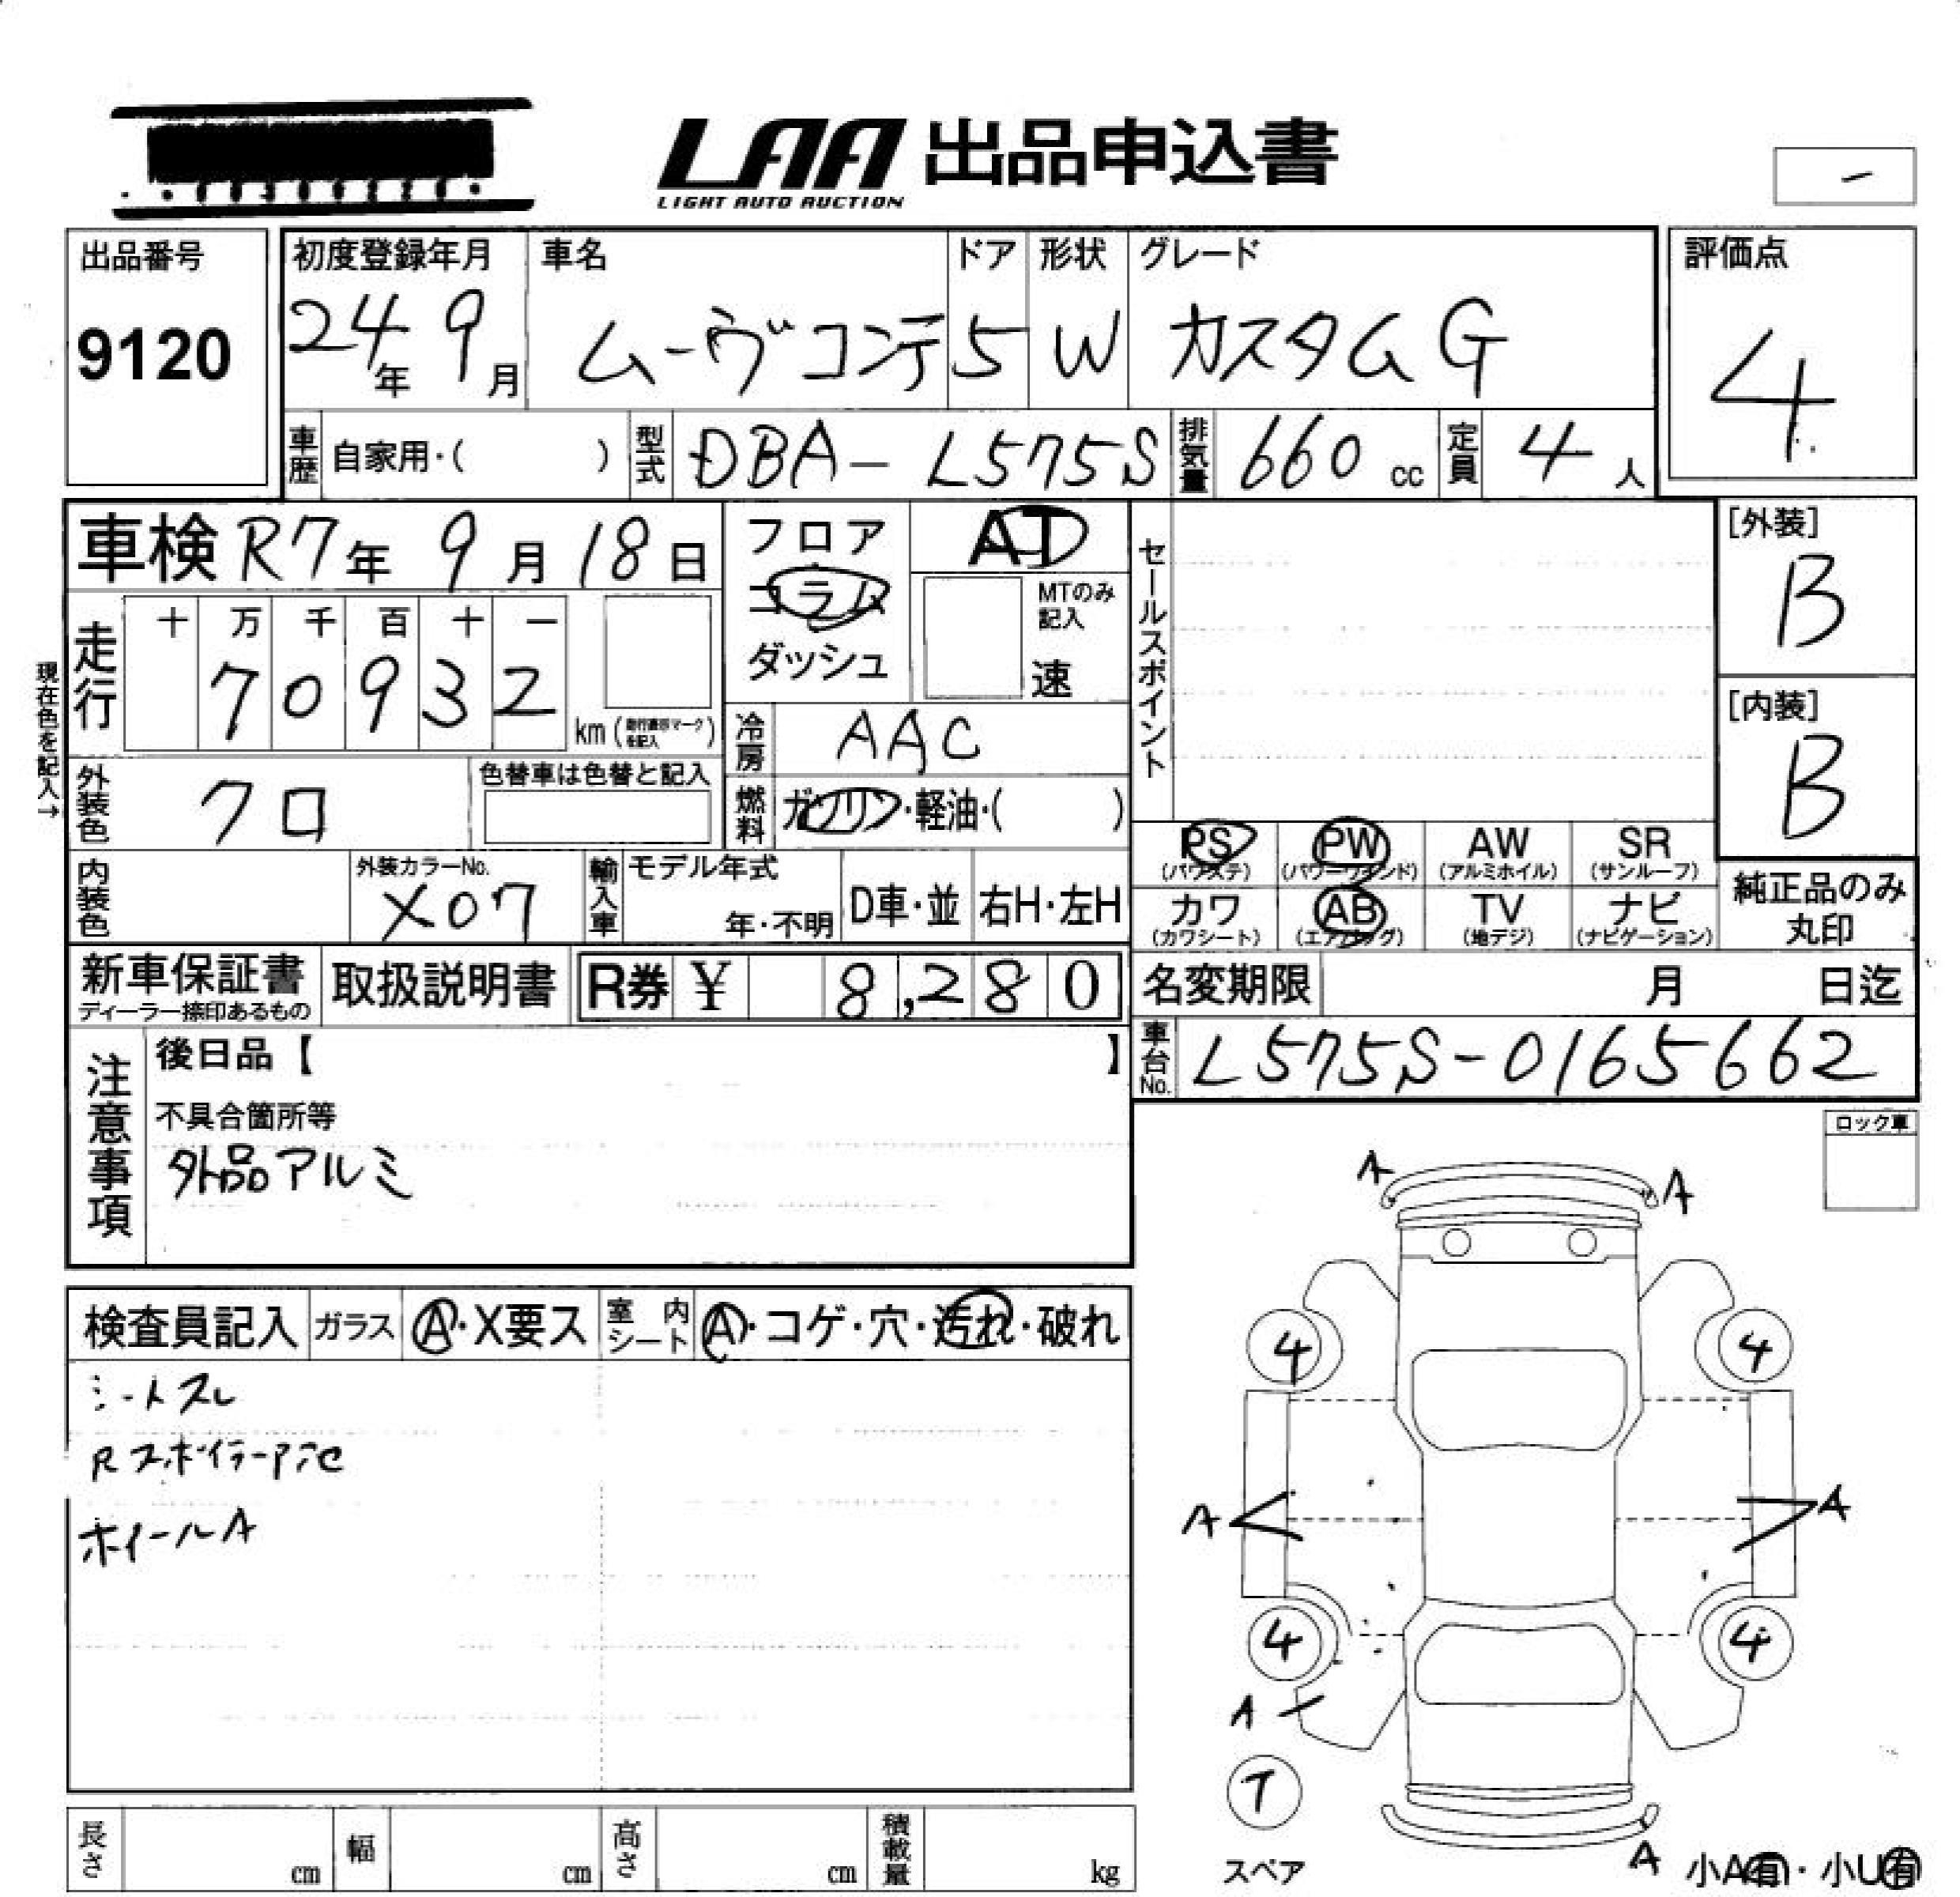 LAA 出品申込書
LIGHT AUTO AUCTION
-
出品番号
9120
初度登録年月
24年 9月
車名
ムーヴコンテ
ドア
5
形状
W
グレード
カスタムG
評価点
4
車歴 自家用・( )
型式 DBA-L575S
排気量 660 cc
定員 4 人
車検 R7年 9月 18日
フロア
コラム
ダッシュ
AT
MTのみ記入
速
セールスポイント
[外装]
B
[内装]
B
現在色を記入→
走行
十 万 千 百 十 一
7 0 9 3 2
km (走行表示マークを記入)
冷房 AAC
外装色 クロ
色替車は色替と記入
燃料 ガソリン・軽油・( )
内装色
外装カラーNo.
X07
輸入車 モデル年式
年・不明
D車・並
右H・左H
PS (パワステ)
PW (パワーウインド)
AW (アルミホイル)
SR (サンルーフ)
カワ (カワシート)
AB (エアバッグ)
TV (地デジ)
ナビ (ナビゲーション)
純正品のみ
丸印
新車保証書
ディーラー捺印あるもの
取扱説明書
R券 ¥ 8,280
名変期限 月 日迄
車台No. L575S-0165662
注意事項
後日品【 】
不具合箇所等
外品アルミ
ロック車
検査員記入
ガラス A・X要ス
室内シート A・コゲ・穴・汚れ・破れ
シートスレ
Rスポイラー
ホイールA
A A
4 4
A A
4 4
A
T
スペア
A
小A有・小U有
長さ cm
幅 cm
高さ cm
積載量 kg